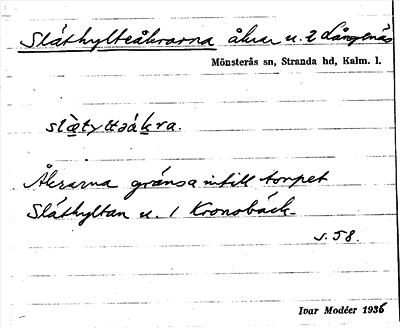 Släthylteåkrarna åkrar u. 2 Långenäs
Mönsterås sn, Stranda hd, Kalm. l.
slæ̀tyltəåkra.
Åkrarna gränsa intill torpet
Släthyltan u. 1 Kronobäck
s. 58.
Ivar Modéer 1936